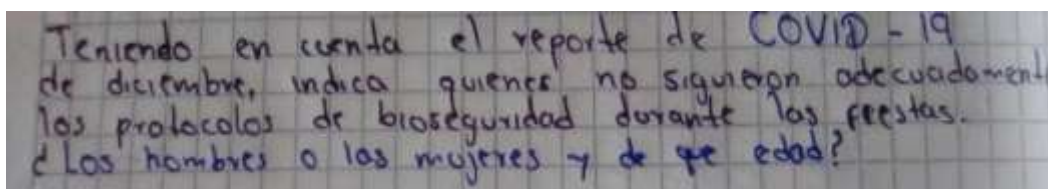 Teniendo en cuenta el reporte de COVID-19
de diciembre, indica quienes no siguieron adecuadament
los protocolos de bioseguridad durante las feestas.
¿Los hombres o las mujeres y de que edad?